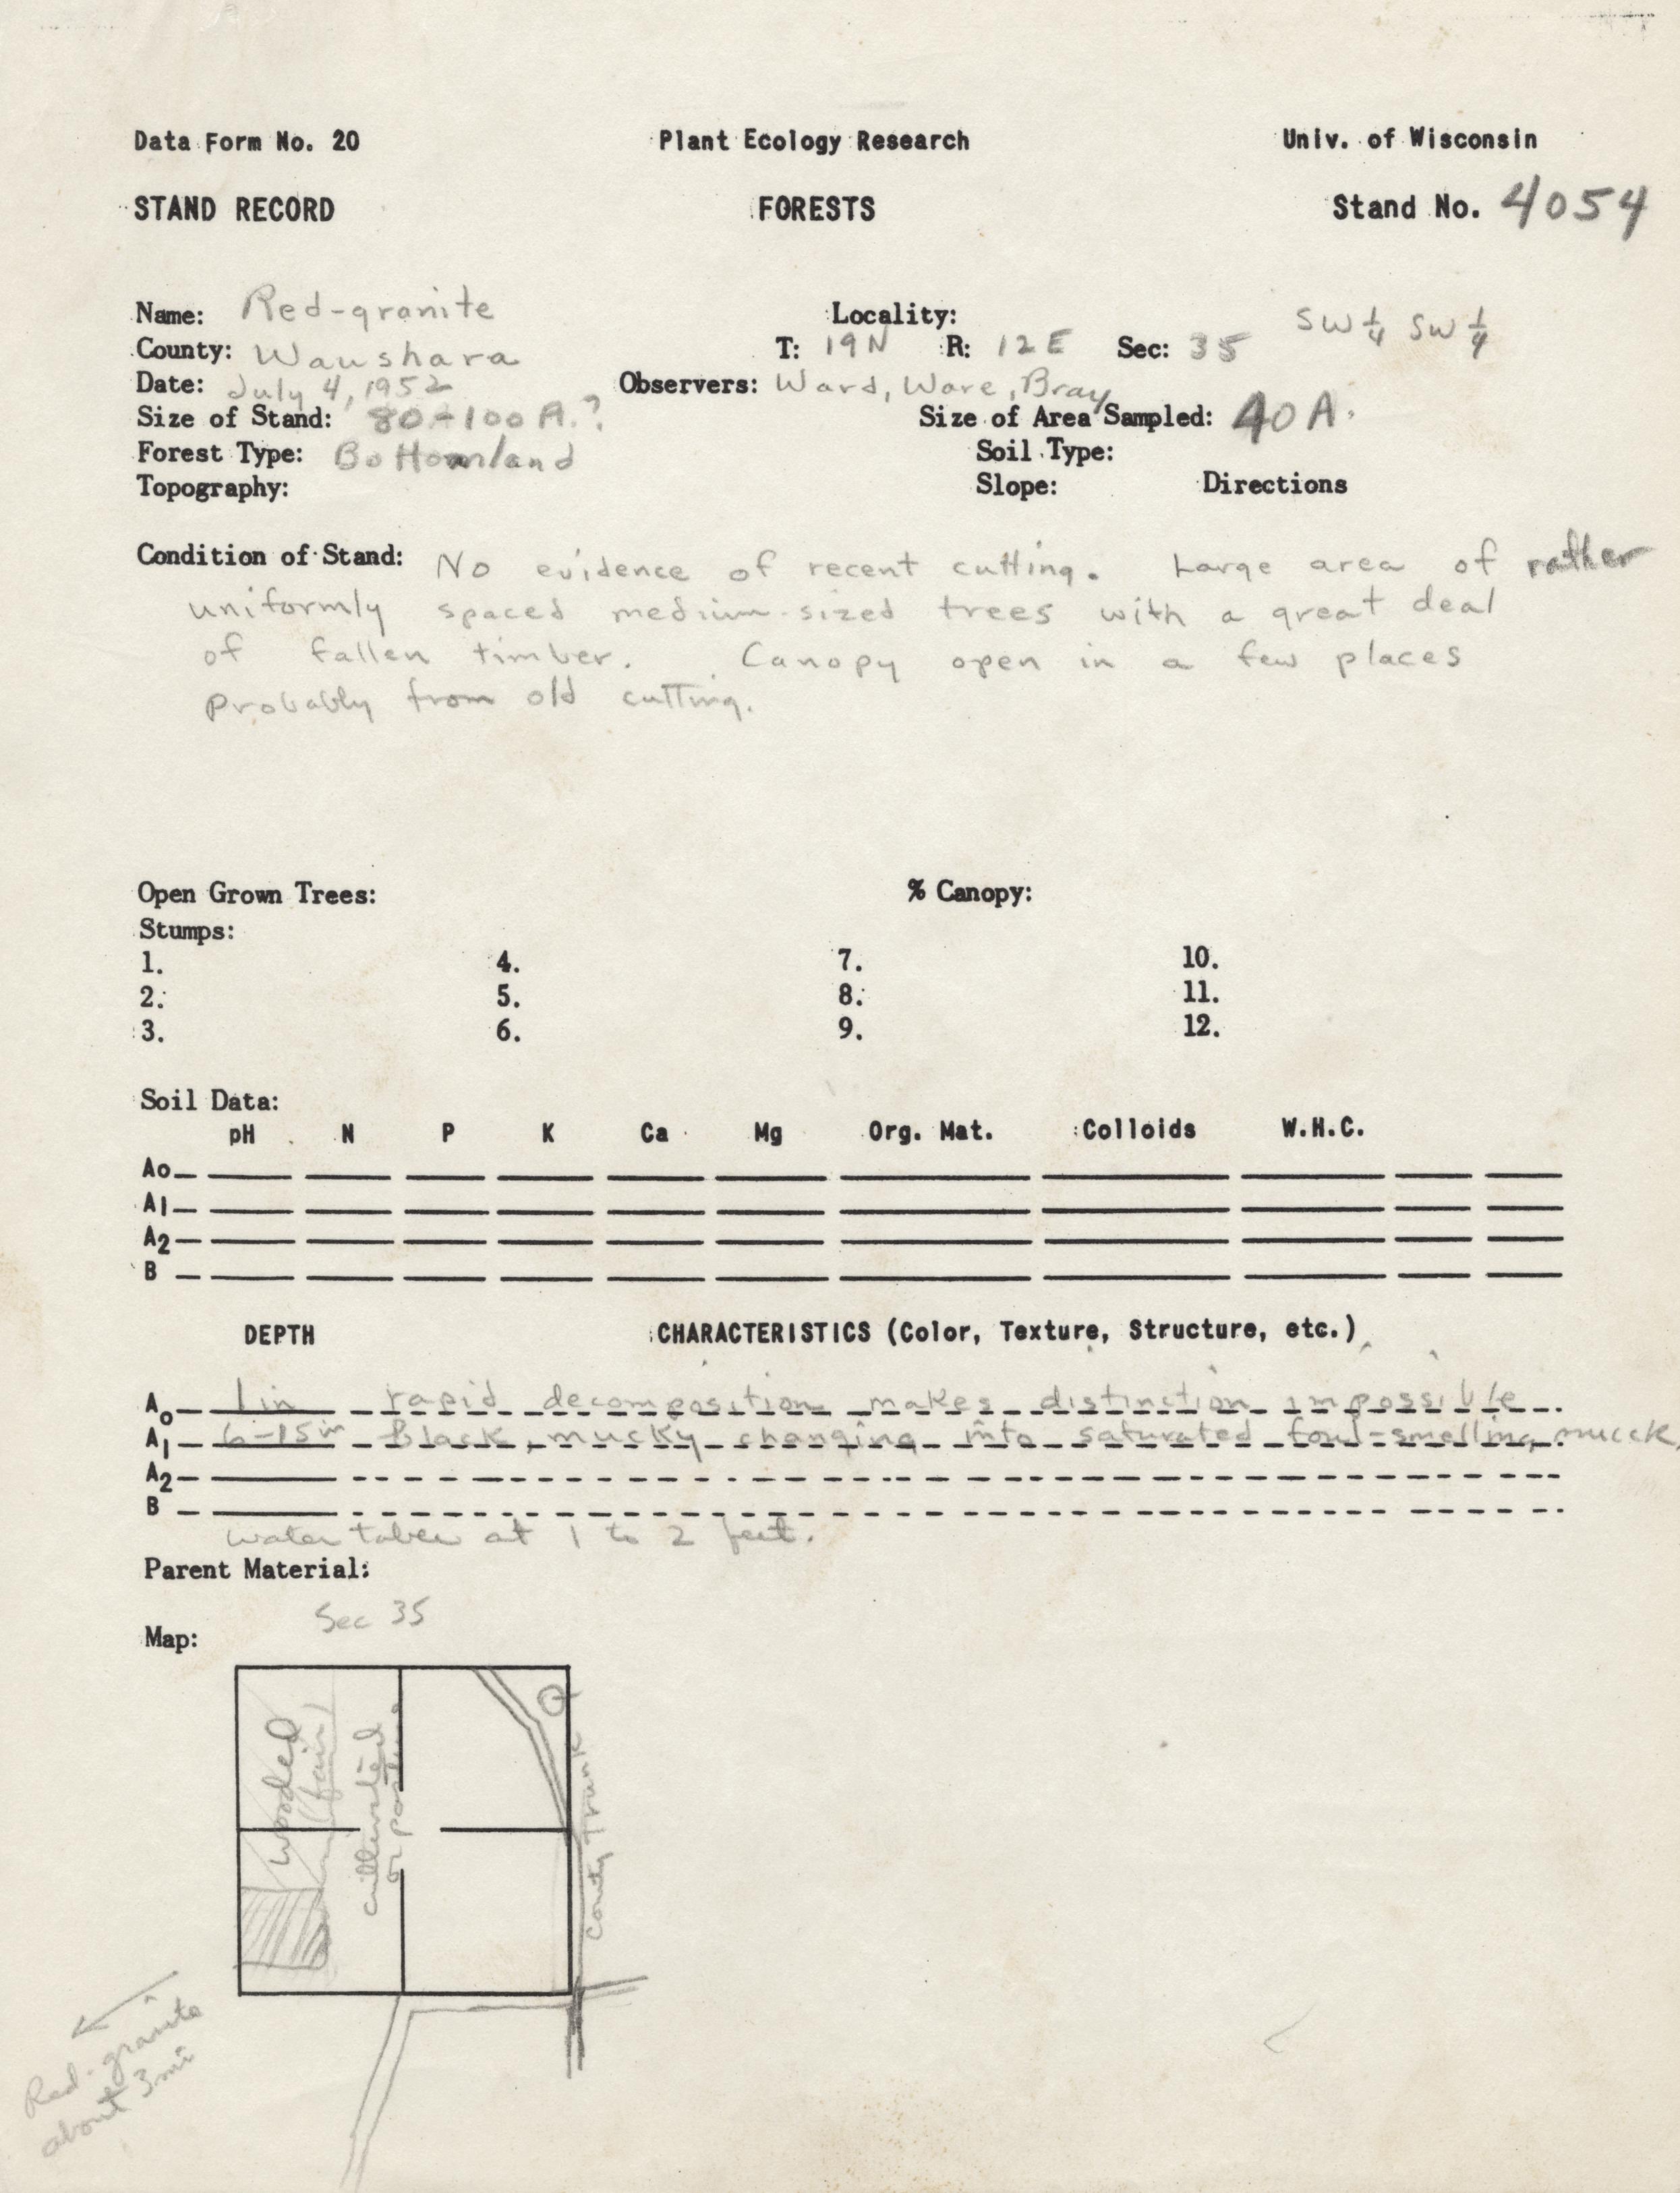 Data Form No. 20 Plant Ecology Research Univ. of Wisconsin
STAND RECORD FORESTS Stand No. 4054
Name: Red-granite Locality: SW 1/4 SW 1/4
County: Waushara T: 19N R: 12E Sec: 35
Date: July 4, 1952 Observers: Ward, Ware, Bray
Size of Stand: 80-100 A.? Size of Area Sampled: 40 A.
Forest Type: Bottomland Soil Type:
Topography: Slope: Directions
Condition of Stand: No evidence of recent cutting. Large area of rather
uniformly spaced medium-sized trees with a great deal
of fallen timber. Canopy open in a few places
probably from old cutting.
Open Grown Trees: % Canopy:
Stumps:
1. 4. 7. 10.
2. 5. 8. 11.
3. 6. 9. 12.
Soil Data:
pH N P K Ca Mg Org. Mat. Colloids W.H.C.
Ao
A1
A2
B
DEPTH CHARACTERISTICS (Color, Texture, Structure, etc.)
Ao 1 in rapid decomposition makes distinction impossible
A1 6-15 in Black, mucky changing into saturated foul-smelling muck.
A2
B
water table at 1 to 2 feet.
Parent Material:
Sec 35
Map:
Wooded
(fair)
cultivated
or
Q
County Trunk
Red-granite
about 3 mi